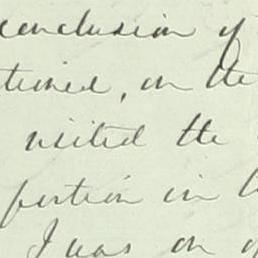 conclusion of
tioned, on the
visited the
portion in
I was on